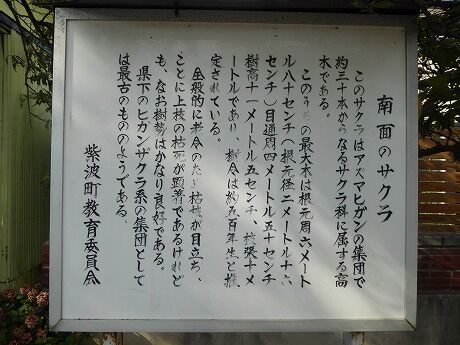 南面のサクラ
このサクラはアズマヒガンの集団で
約三十本からなるサクラ科に属する高
木である。
このうちの最大木は根元周六メート
ル八十センチ(根元径二メートル十六
センチ)目通周四メートル五十センチ
樹高十一メートル五センチ、枝張十メ
ートルであり、樹令は約五百年生と推
定されている。
全般的に老令のため枯枝が目立ち、
ことに上枝の枯死が顕著であるけれど
も、なお樹勢はかなり良好である。
県下のヒガンザクラ系の集団として
は最古のもののようである。
紫波町教育委員会